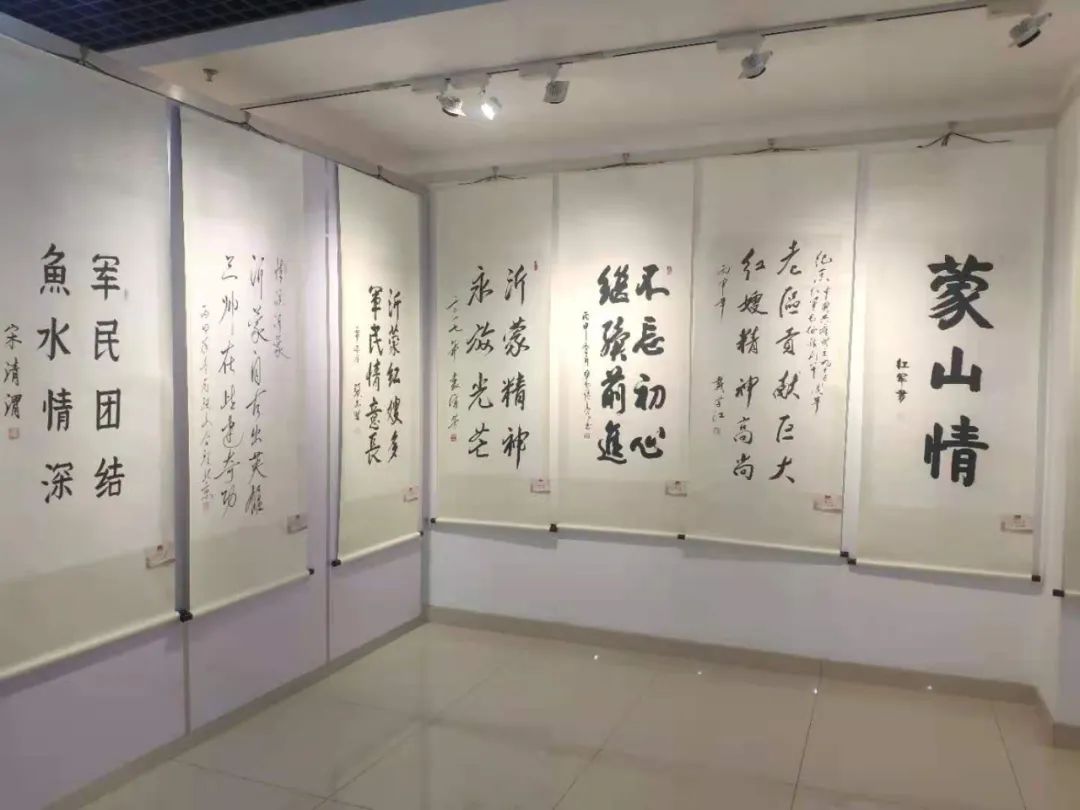 军民团结
魚水情深
宋清渭
沂蒙自古出英雄
三帅在此建奇功
沂蒙红嫂多
軍民情意長
沂蒙精神
永放光芒
不忘初心
继續前進
老區贡献巨大
红嫂精神高尚
丙申年
蒙山情